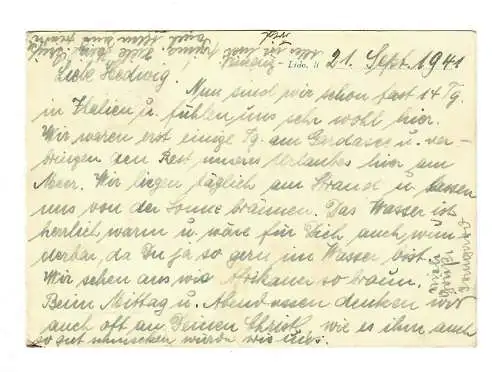 Venedig - Lido, d. 21. Sept. 1941
Liebe Hedwig!
Nun sind wir schon fast 14 Tg.
in Italien u. fühlen uns sehr wohl hier.
Wir waren erst einige Tg. am Gardasee u. ver-
bringen den Rest unseres Urlaubes hier am
Meer. Wir liegen täglich am Strande u. lassen
uns von der Sonne bräunen. Das Wasser ist
herrlich warm u. wäre für Dich auch wun-
derbar, da Du ja so gern im Wasser bist.
Wir sehen aus wie Afrikaner so braun.
Beim Mittag u. Abendessen denken wir
auch oft an Deinen Christl, wie es ihm auch
so gut schmecken würde wie uns.